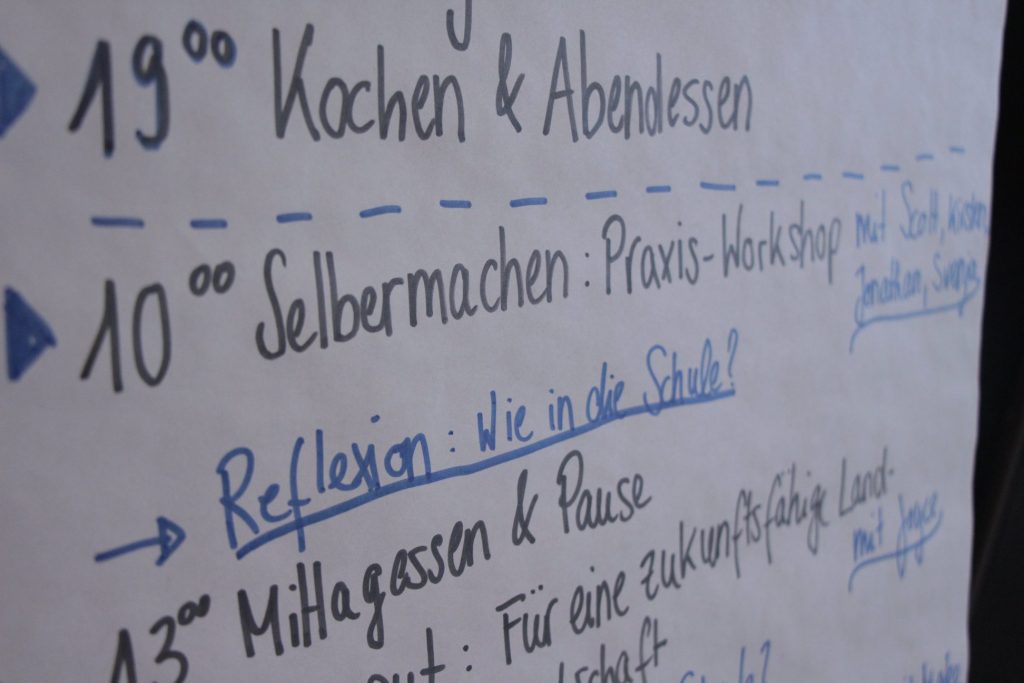 19⁰⁰ Kochen & Abendessen
10⁰⁰ Selbermachen: Praxis-Workshop mit Scott, Kirsten,
Jonathan, Svenja
→ Reflexion: Wie in die Schule?
13⁰⁰ Mittagessen & Pause
Für eine zukunftsfähige Land-
mit Joyce
schaft